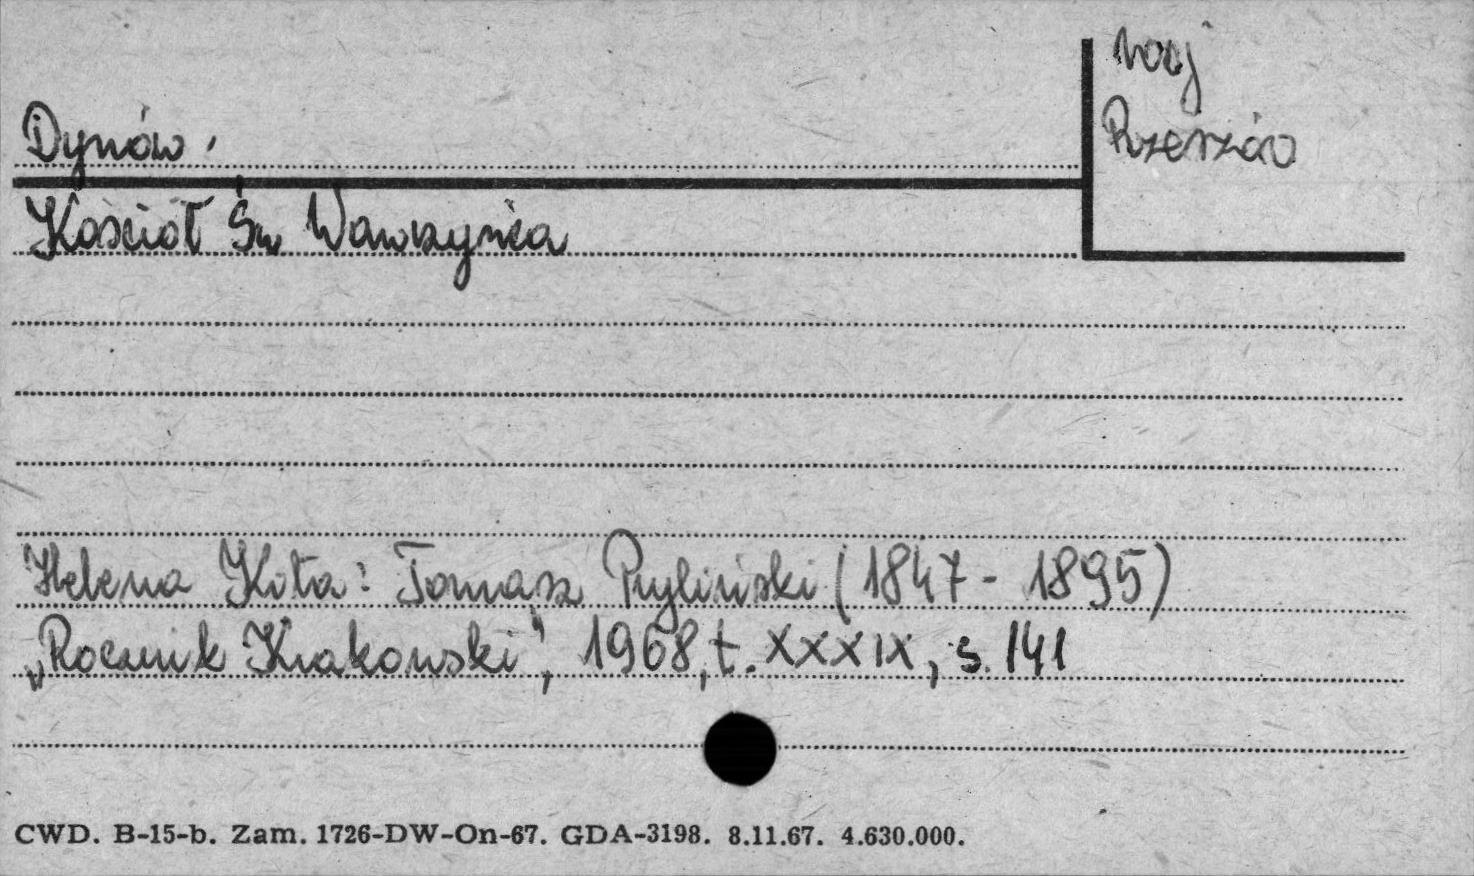 woj
Rzeszów
Dynów.
Kościół Św Wawrzyńca
Helena Kota: Tomasz Pryliński (1847 - 1895)
„Rocznik Krakowski", 1968, t. XXXIX, s. 141
CWD. B-15-b. Zam. 1726-DW-On-67. GDA-3198. 8.11.67. 4.630.000.